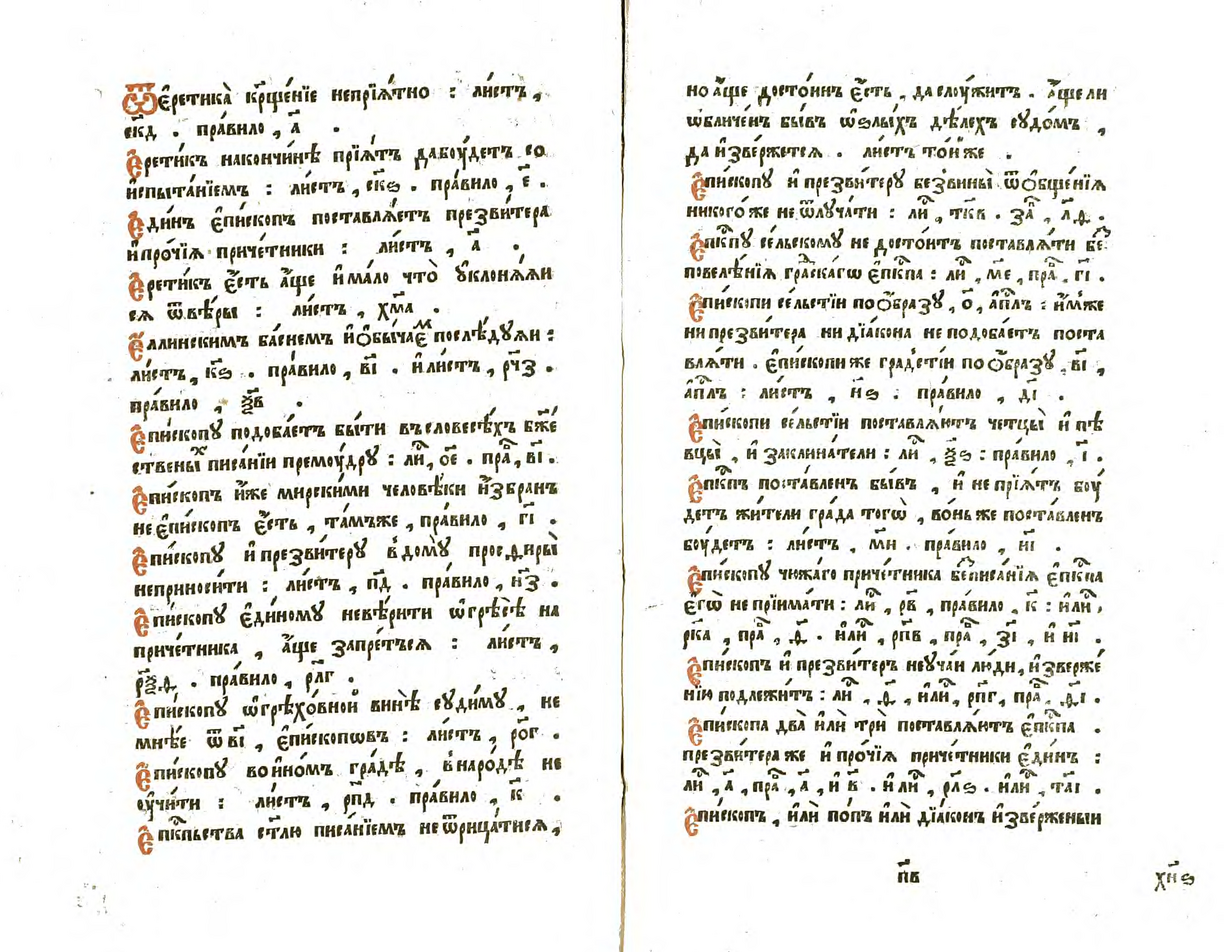 Ѿ є҆ретика̀ кр҃щенїе непрїѧ́тно : ли́стъ ,
с҃кд . пра́вило , а҃ .
Є҆ретикъ наконч́инѣ прїѧ́тъ дабоу́детъ со
и҆спыта́нїемъ : ли́стъ , с҃кѕ . пра́вило , є҃ .
Є҆динъ є҆пископъ поставлѧ́етъ презви́тера
и҆про́чїѧ приче́тники : ли́стъ , а҃ .
Є҆ретикъ є҆́сть а҆́ще и҆ма́ло что̀ ᲂу҆клонѧ́ѧи
сѧ ѿвѣ́ры : ли́стъ , х҃ма .
Є҆ллинскимъ ба́снемъ и҆ѻ҆бы́чаемъ послѣ́дуѧи :
ли́стъ , к҃ѕ . пра́вило , в҃і . и҆ли́стъ , р҃чз .
пра́вило , ѯ҃в .
Є҆пископу подоба́етъ бы́ти въсловесѣ́хъ бж҃е
ственыхъ писа́нїи премоу́дру : ли̑ , о҃е . пра̑ , в҃і .
Є҆пископъ и҆́же мирски́ми человѣ́ки и҆збранъ
не є҆пископъ є҆́сть , та́мъже , пра́вило , г҃і .
Є҆пископу и҆ презви́теру в дому̀ просѳиры̀
неприноси́ти : ли́стъ , п҃д . пра́вило , н҃з .
Є҆пископу є҆ди́ному невѣ́рити ѡ҆грѣ́сѣ на
приче́тника , а҆́ще запре́тъсѧ : ли́стъ ,
р҃ѯѳ . пра́вило , р҃лг .
Є҆пископу ѡ҆грѣхо́вной винѣ̀ суди́му , не
мнѣе ѿ в҃і , є҆пископѡвъ : ли́стъ , р҃ог .
Є҆пископу во и҆но́мъ гра́дѣ , в наро́дѣ не
ᲂу҆чи́ти : ли́стъ , р҃пд . пра́вило , к҃ .
Є҆пк҃пьства ст҃лю писа́нїемъ не ѿрица́тисѧ ,
но а҆́ще досто́инъ є҆́сть , да слоу́житъ . а҆́ще ли
ѡ҆бличе́нъ бы́въ ѡ҆ ѕлы́хъ дѣ́лехъ судо́мъ ,
да и҆зве́ржетсѧ . ли́стъ то́и же .
Є҆пископу и҆ презви́теру безвины̀ ѿ ѻ҆бще́нїѧ
никого́же не ѿлуча́ти : ли̑ , т҃кв . за̑ , л҃ѳ .
Є҆пк҃пу се́льскому не досто́итъ поставлѧ́ти бе̑з
повелѣ́нїѧ гра̑скагѡ є҆пк҃па : ли̑ , м҃е , пра̑ , г҃і .
Є҆пископи се́льстїи по ѻ҆́бразу , о҃ , а҆п҃лъ : и҆́мже
ни презви́тера ни дїа́кона не подоба́етъ поста
влѧ́ти . є҆пископи же гра́дстїи по ѻ҆́бразу , в҃і ,
а҆п҃лъ : ли́стъ , н҃ѕ : пра́вило , д҃і .
Є҆пископи се́льстїи поставлѧ́ютъ четцы̀ и҆ пѣ
вцы̀ , и҆ заклина́тели : ли̑ , ѯ҃ѕ : пра́вило , і҃ .
Є҆пк҃пъ поста́вленъ бы́въ , и҆ не прїѧ́тъ боу́
детъ жи́тели гра́да тогѡ̀ , во́ньже поста́вленъ
боу́детъ : ли́стъ , м҃и . пра́вило , и҃і .
Є҆пископу чюжа́го приче́тника бе̑з писа́нїѧ є҆пк҃па
є҆гѡ̀ не прїима́ти : ли̑ , р҃в , пра́вило , к҃ : и҆ли̑ ,
р҃ка , пра̑ , ѳ҃ . и҆ли̑ , р҃пв , пра̑ , з҃і , и҆ и҃і .
Є҆пископъ и҆ презви́теръ неуча́и лю́ди, и҆зверже́
нїю подлежи́тъ : ли̑ , ѳ҃ , и҆ли̑ , р҃пг , пра̑ , ѳ҃і .
Є҆пископа два̀ и҆лѝ трѝ поставлѧ́ютъ є҆пк҃па .
презви́тера же и҆ про́чїѧ приче́тники є҆ди́нъ :
ли̑ , а҃ , пра̑ , а҃ , и҆ в҃ . и҆ли̑ , р҃лѕ . и҆ли̑ , т҃аі .
Є҆пископъ , и҆лѝ по́пъ и҆лѝ дїа́конъ и҆зве́рженыи
п҃в
х҃нѕ